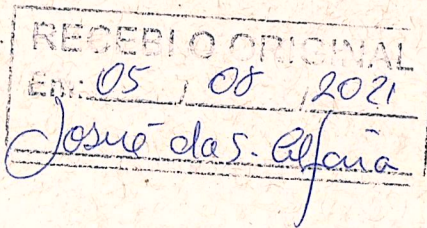 RECEBI O ORIGINAL
Em: 05 / 08 / 2021
Josué da S. Alfaia